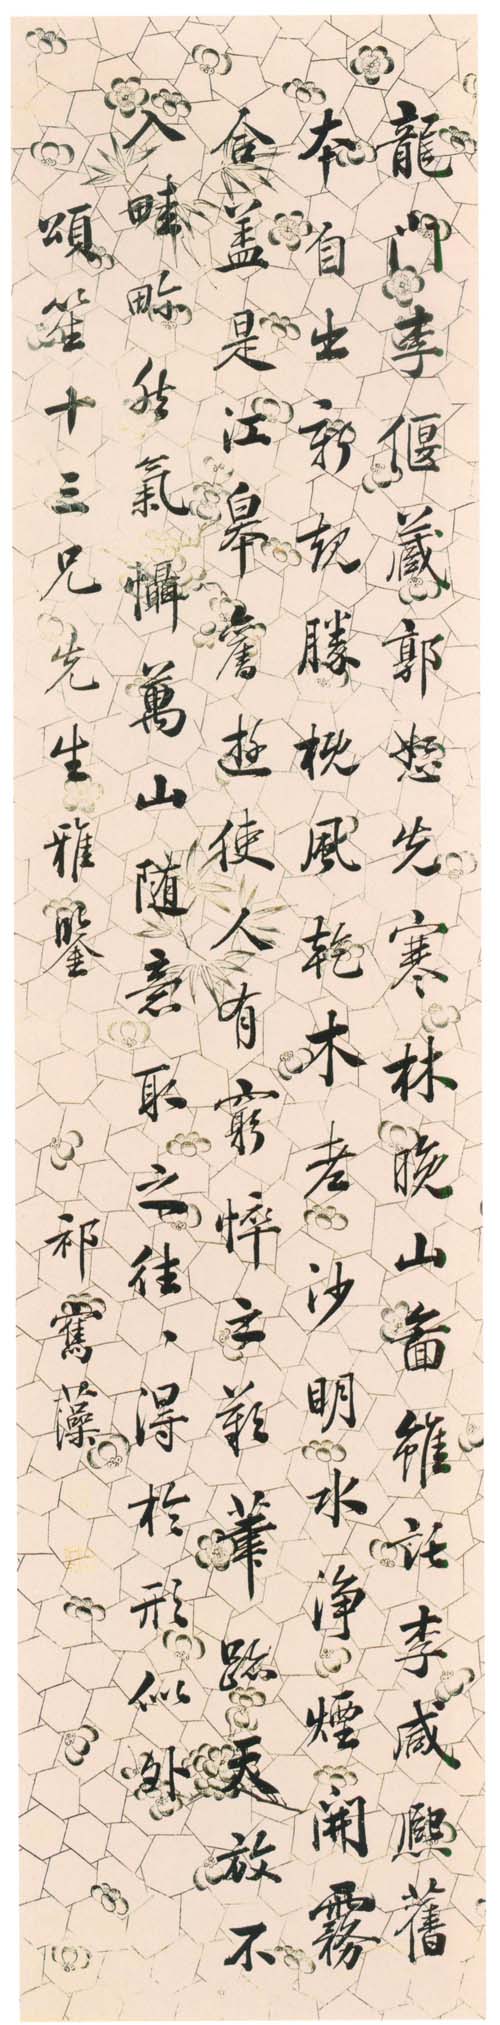 龍門李偃藏郭恕先寒林晚山圖雖託李咸熙舊
本自出新規勝槩風乾木老沙明水淨煙開霧
合蓋是江皋舊遊使人有窮悴之歎筆跡天放不
入畦畛然氣懾萬山随意取之往、得於形似外
頌笙十三兄先生雅鑒
祁寯藻